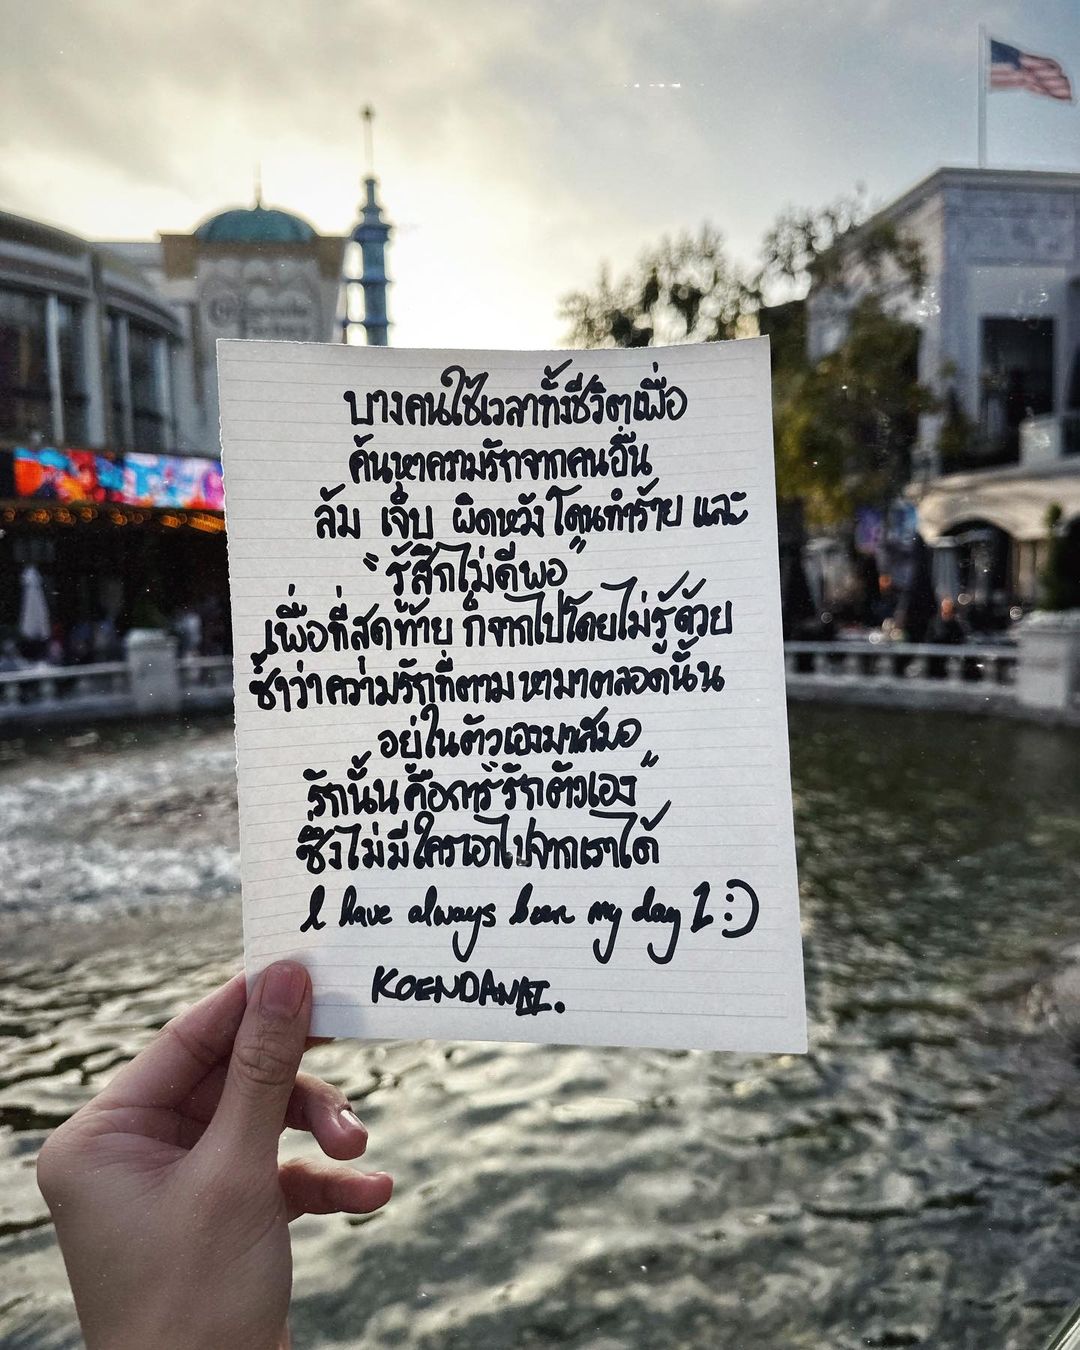 บางคนใช้เวลาทั้งชีวิตเพื่อ
ค้นหาความรักจากคนอื่น
ล้ม เจ็บ ผิดหวัง โดนทำร้าย และ
"รู้สึกไม่ดีพอ"
เพื่อที่สุดท้าย ก็จากไปโดยไม่รู้ด้วย
ซ้ำว่าความรักที่ตามหามาตลอดนั้น
อยู่ในตัวเองมาเสมอ
รักนั้น คือการ "รักตัวเอง"
ซึ่งไม่มีใครเอาไปจากเราได้
I have always been my day 1 :)
KOENDANAI.